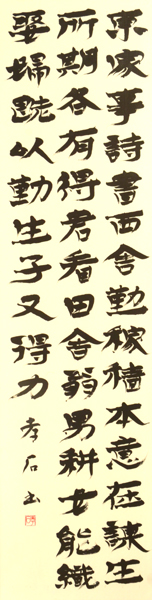 東家事詩書西舍勤稼穡本意在謀生
所期各有得君看田舍翁男耕女能織
娶婦既以勤生子又得力 孝石书